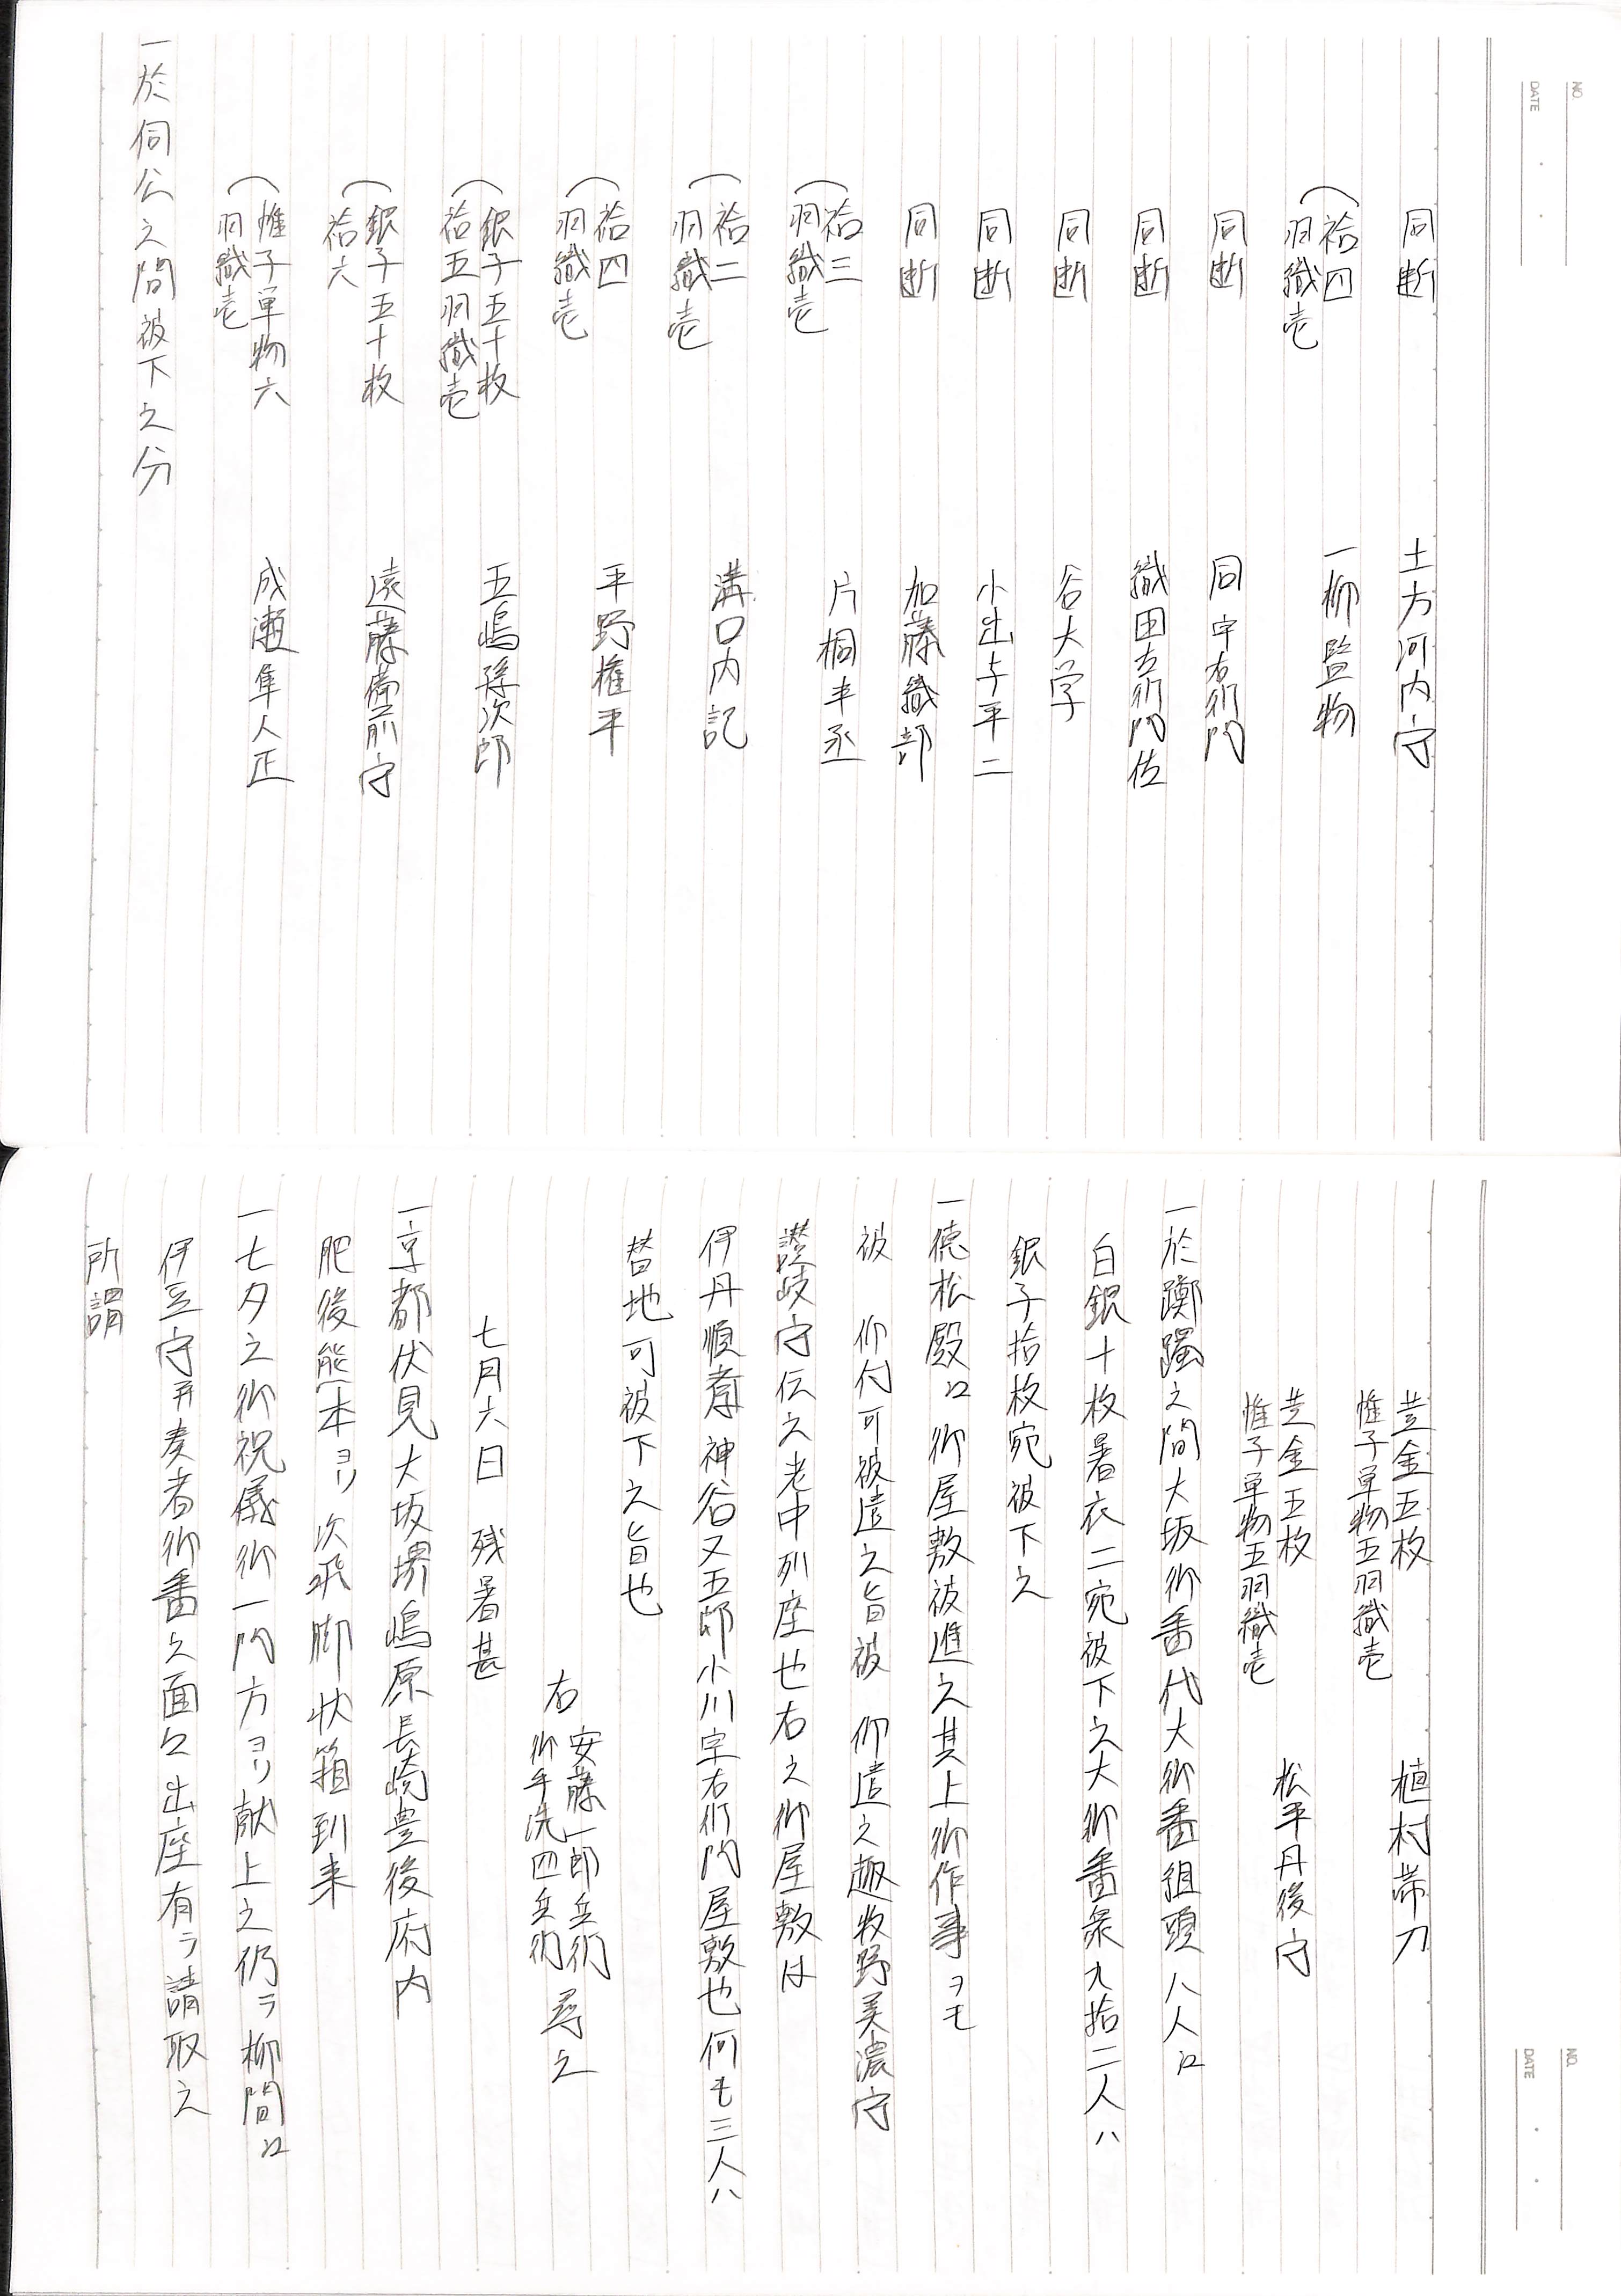 NO.
DATE
同断 土方河内守
袷四 一柳監物
羽織壱
同断 同宇右衛門
同断 織田左衛門佐
同断 谷大学
同断 小出与平二
同断 加藤織部
袷三 片桐半丞
羽織壱
袷二 溝口内記
羽織壱
袷四 平野権平
羽織壱
銀子五十枚 五嶋孫次郎
袷五羽織壱
銀子五十枚 遠藤備前守
袷六
帷子単物六 成瀬隼人正
羽織壱
一於伺公之間被下之分
NO.
DATE
黄金五枚 植村帯刀
帷子単物五羽織壱
黄金五枚 松平丹後守
帷子単物五羽織壱
一於躑躅之間大坂御番代大御番組頭八人江
白銀十枚暑衣二宛被下之大御番衆九拾二人ハ
銀子拾枚宛被下之
一徳松殿江御屋敷被進之其上御作事ヲモ
被 仰付可被遣之旨被 仰遣之趣牧野美濃守
讃岐守伝之老中列座也右之御屋敷は
伊丹順斎神谷又五郎小川宇右衛門屋敷也何も三人ハ
替地可被下之旨也
右 安藤一郎兵衛
御手洗四兵衛 尋之
七月六日 残暑甚
一京都伏見大坂堺嶋原長崎豊後府内
肥後熊本ヨリ次飛脚状箱到来
一七夕之御祝儀御一門方ヨリ献上之仍ラ柳間江
伊豆守并奏者御番之面々出座有ラ請取之
所謂